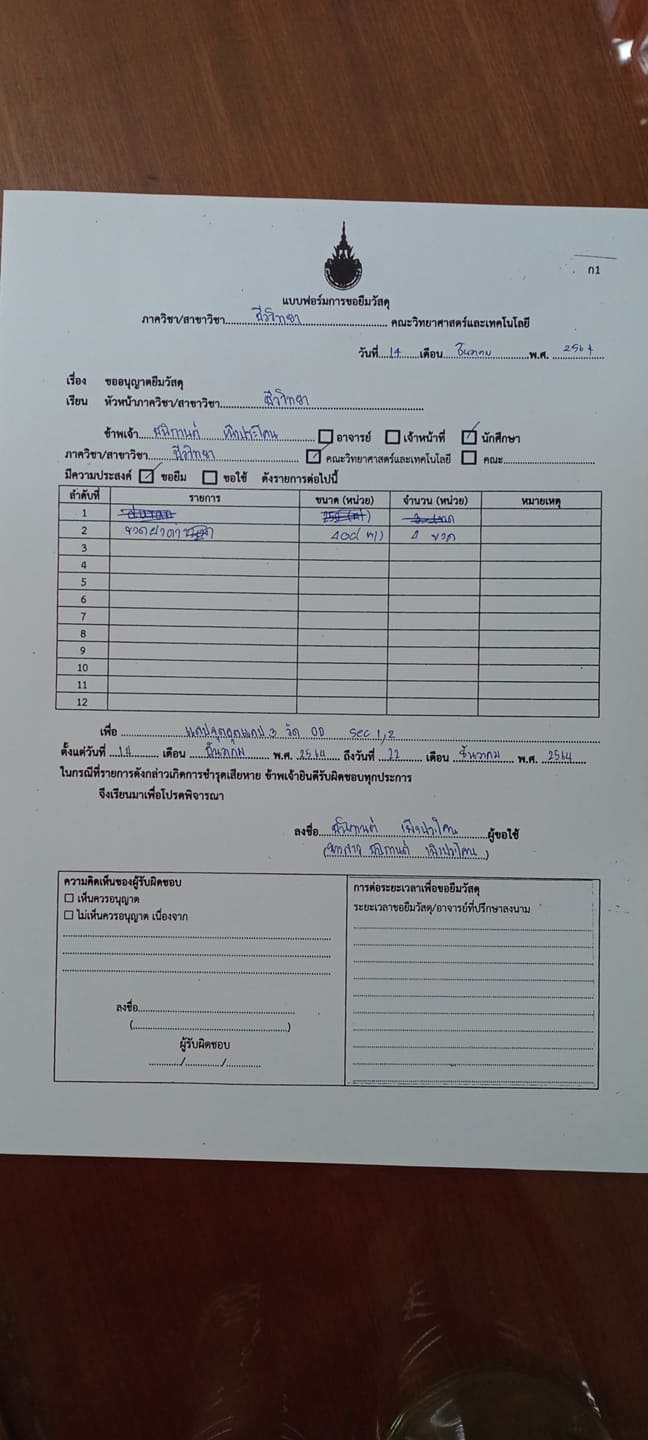 ก1
แบบฟอร์มการขอยืมวัสดุ
ภาควิชา/สาขาวิชา ชีววิทยา คณะวิทยาศาสตร์และเทคโนโลยี
วันที่ 14 เดือน ธันวาคม พ.ศ. 2564
เรื่อง ขออนุญาตยืมวัสดุ
เรียน หัวหน้าภาควิชา/สาขาวิชา ชีววิทยา
ข้าพเจ้า อาจารย์ เจ้าหน้าที่ นักศึกษา
ภาควิชา/สาขาวิชา ชีววิทยา คณะวิทยาศาสตร์และเทคโนโลยี คณะ
มีความประสงค์ ขอยืม ขอใช้ ดังรายการต่อไปนี้
ลำดับที่ รายการ ขนาด (หน่วย) จำนวน (หน่วย) หมายเหตุ
1
2 ขวดฝาดำ 4 ขวด
3
4
5
6
7
8
9
10
11
12
เพื่อ วัด OD Sec 1,2
ตั้งแต่วันที่ 14 เดือน ธันวาคม พ.ศ. 2564 ถึงวันที่ 22 เดือน ธันวาคม พ.ศ. 2564
ในกรณีที่รายการดังกล่าวเกิดการชำรุดเสียหาย ข้าพเจ้ายินดีรับผิดชอบทุกประการ
จึงเรียนมาเพื่อโปรดพิจารณา
ลงชื่อ ผู้ขอใช้
(นางสาว )
ความคิดเห็นของผู้รับผิดชอบ
เห็นควรอนุญาต
ไม่เห็นควรอนุญาต เนื่องจาก
ลงชื่อ
( )
ผู้รับผิดชอบ
/ /
การต่อระยะเวลาเพื่อขอยืมวัสดุ
ระยะเวลาขอยืมวัสดุ/อาจารย์ที่ปรึกษาลงนาม